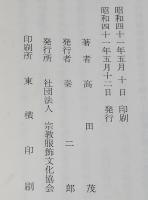 昭和四十一年五月十日 印刷
昭和四十一年五月十二日 発行
著者 高田茂
発行者 秦二郎
発行所 社団法人 宗教服飾文化協会
印刷所 東横印刷